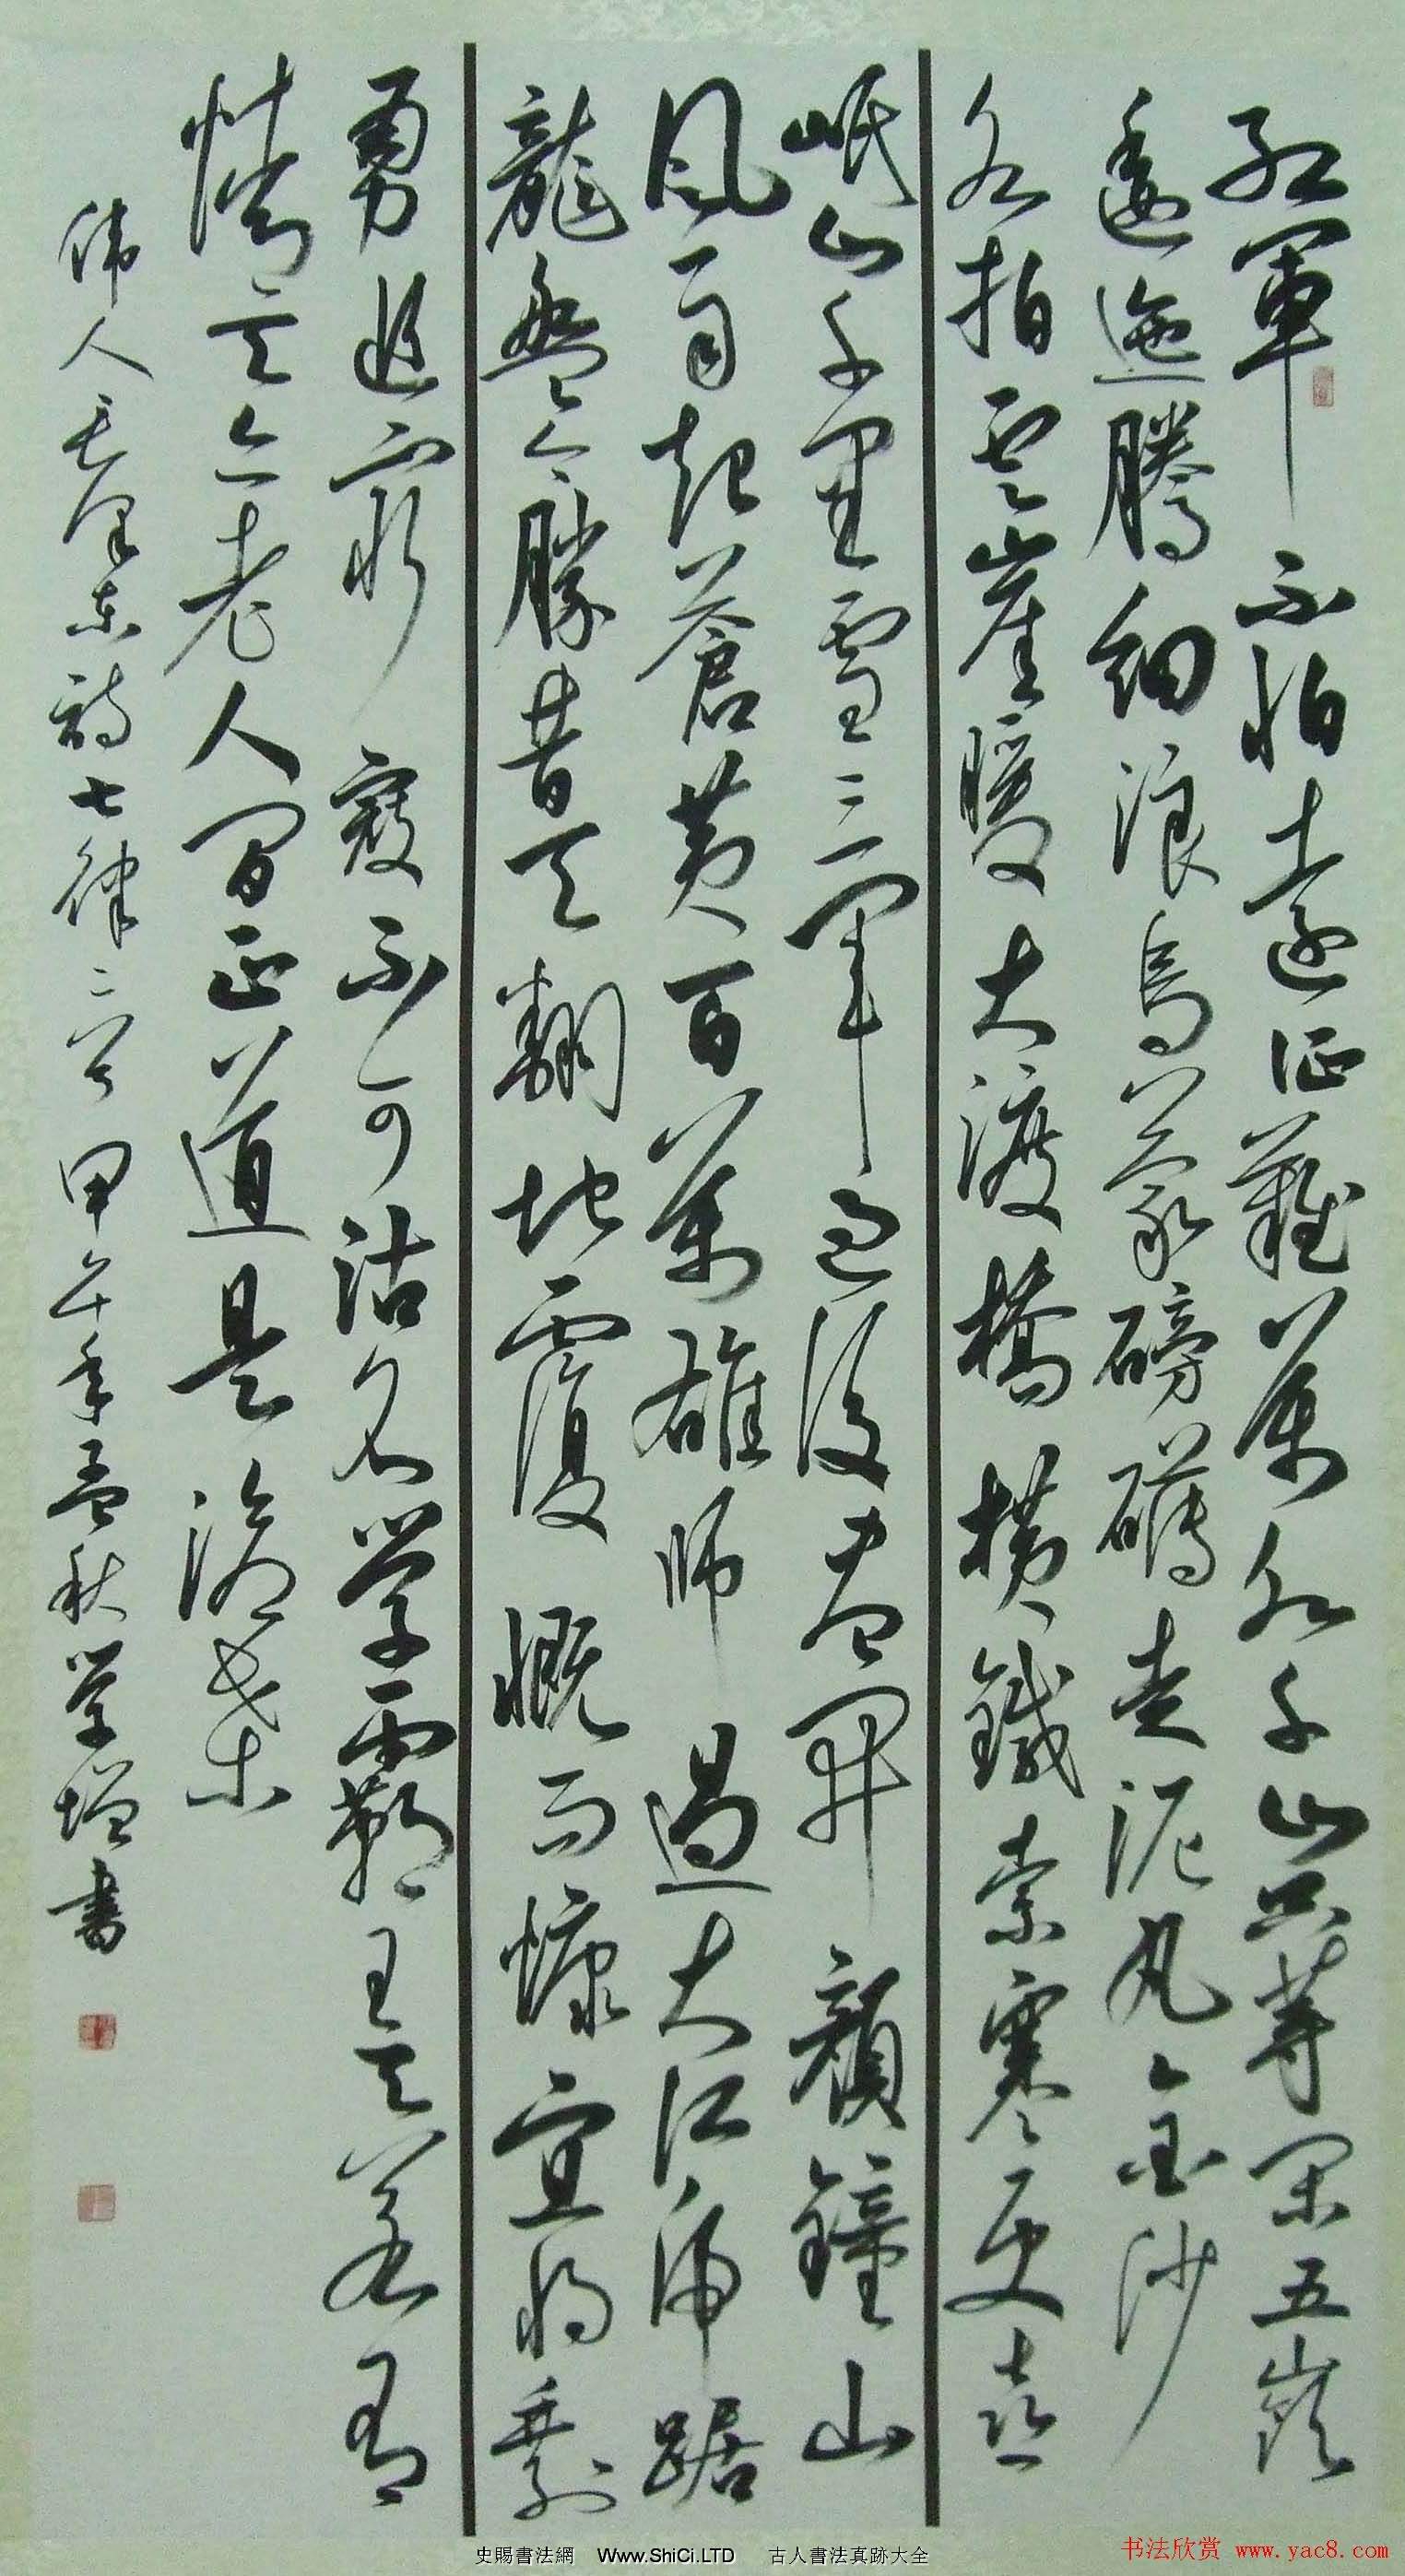 紅軍不怕遠征難萬水千山只等閑五嶺
逶迤騰細浪烏蒙磅礴走泥丸金沙
水拍雲崖暖大渡橋橫鐵索寒更喜
岷山千里雪三軍過後盡開顏鐘山
風雨起蒼黃百萬雄師過大江虎踞
龍盤今勝昔天翻地覆慨而慷宜將剩
勇追窮寇不可沽名學霸王天若有
情天亦老人間正道是滄桑
偉人毛澤東詩七律二首甲午年孟秋學增書
史賜書法網 Www.ShiCi.LTD 古人書法真跡大全
书法欣赏 www.yac8.com